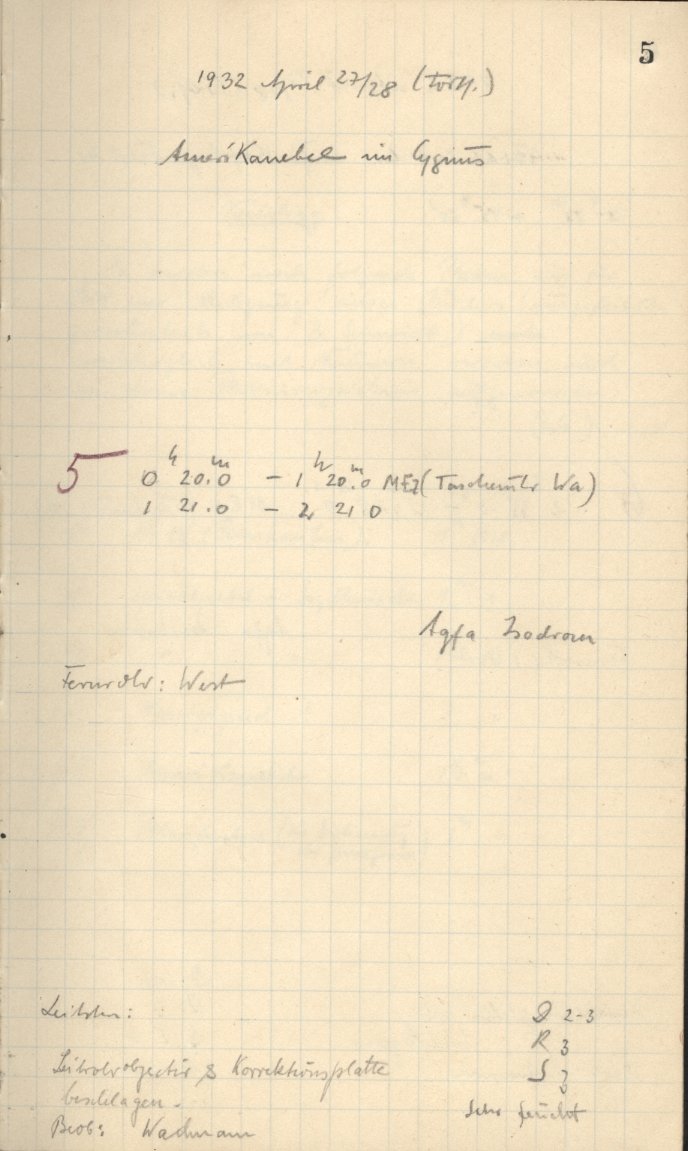 5
1932 April 27/28
Amerikanebel im Cygnus
5 0h 20m.0 – 1h 20m.0 MEZ (Taschenuhr Wa)
1 21.0 – 2 21 0
Agfa Isochrom
Fernrohr: West
Leitstern:
D 2-3
R 3
Leitrohrobjectiv & Korrektionsplatte
S 3
beschlagen.
Sehr feucht
Beob: Wachmann